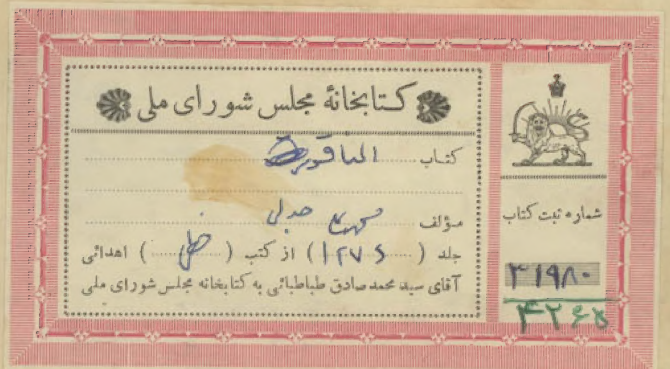 کتابخانهٔ مجلس شورای ملی
کتاب
مؤلف
جلد (۱۲۷۶) از کتب (خطی) اهدائی
آقای سید محمد صادق طباطبائی به کتابخانه مجلس شورای ملی
شماره ثبت کتاب
۳۱۹۸۰